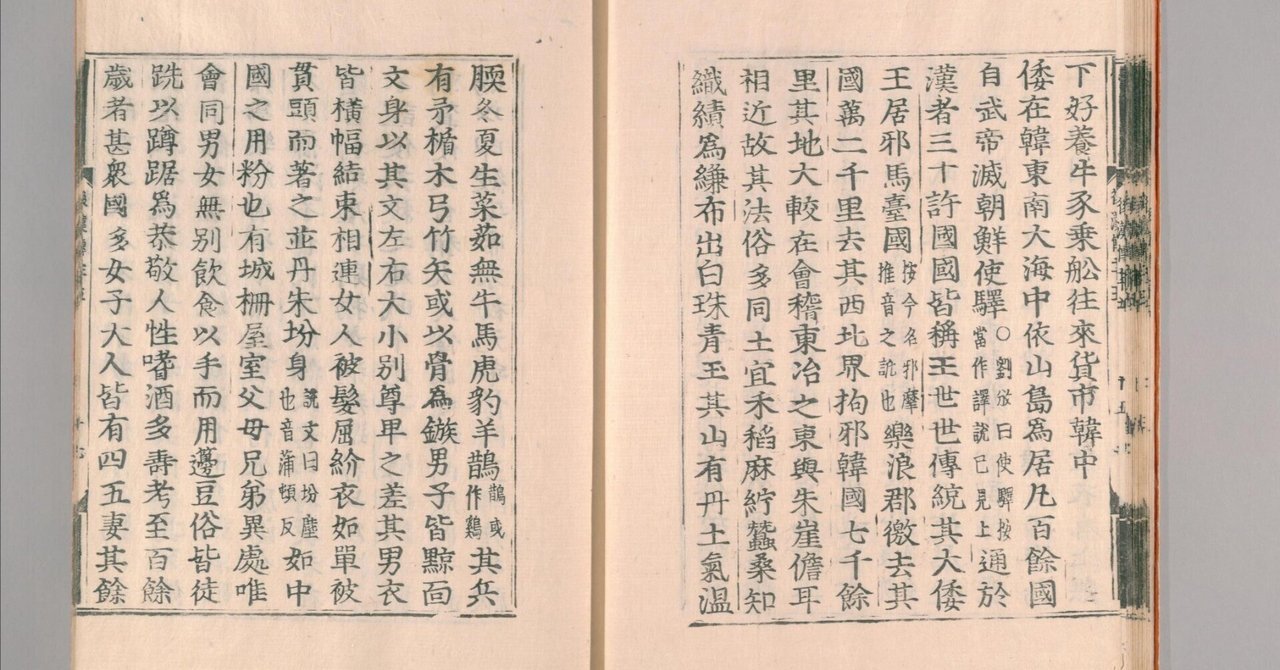 下好養牛豕乘舩往來貨市韓中
倭在韓東南大海中依山島為居凡百餘國
自武帝滅朝鮮使驛○劉攽曰使驛按當作譯說已見上通於
漢者三十許國國皆稱王世世傳統其大倭
王居邪馬臺國按今名邪摩推音之訛也樂浪郡徼去其
國萬二千里去其西北界拘邪韓國七千餘
里其地大較在會稽東冶之東與朱崖儋耳
相近故其法俗多同土宜禾稻麻紵蠶桑知
織績為縑布出白珠青玉其山有丹土氣温
腝冬夏生菜茹無牛馬虎豹羊鵲鵲或作鷄其兵
有矛楯木弓竹矢或以骨為鏃男子皆黥面
文身以其文左右大小別尊卑之差其男衣
皆橫幅結束相連女人被髮屈紒衣如單被
貫頭而著之並丹朱坋身說文曰坋塵也音蒲頓反如中
國之用粉也有城柵屋室父母兄弟異處唯
會同男女無別飲食以手而用籩豆俗皆徒
跣以蹲踞為恭敬人性嗜酒多壽考至百餘
歲者甚衆國多女子大人皆有四五妻其餘